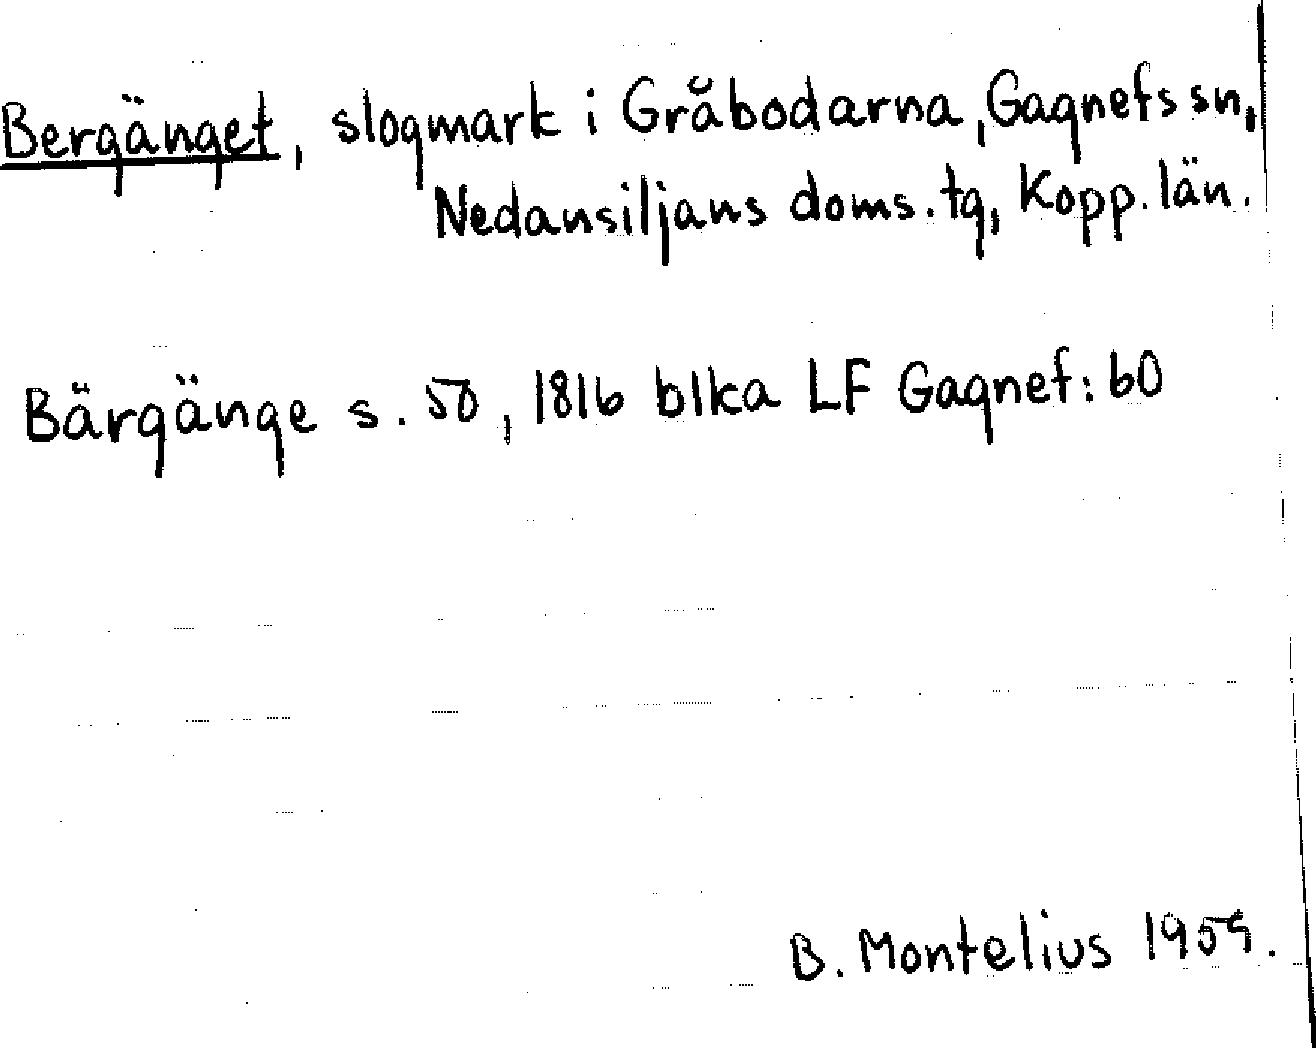 Bergänget, slogmark i Gråbodarna, Gagnefs sn,
Nedansiljans doms. tg, Kopp. län.
Bärgänge s. 50, 1816 blka LF Gagnef: 60
B. Montelius 1959.